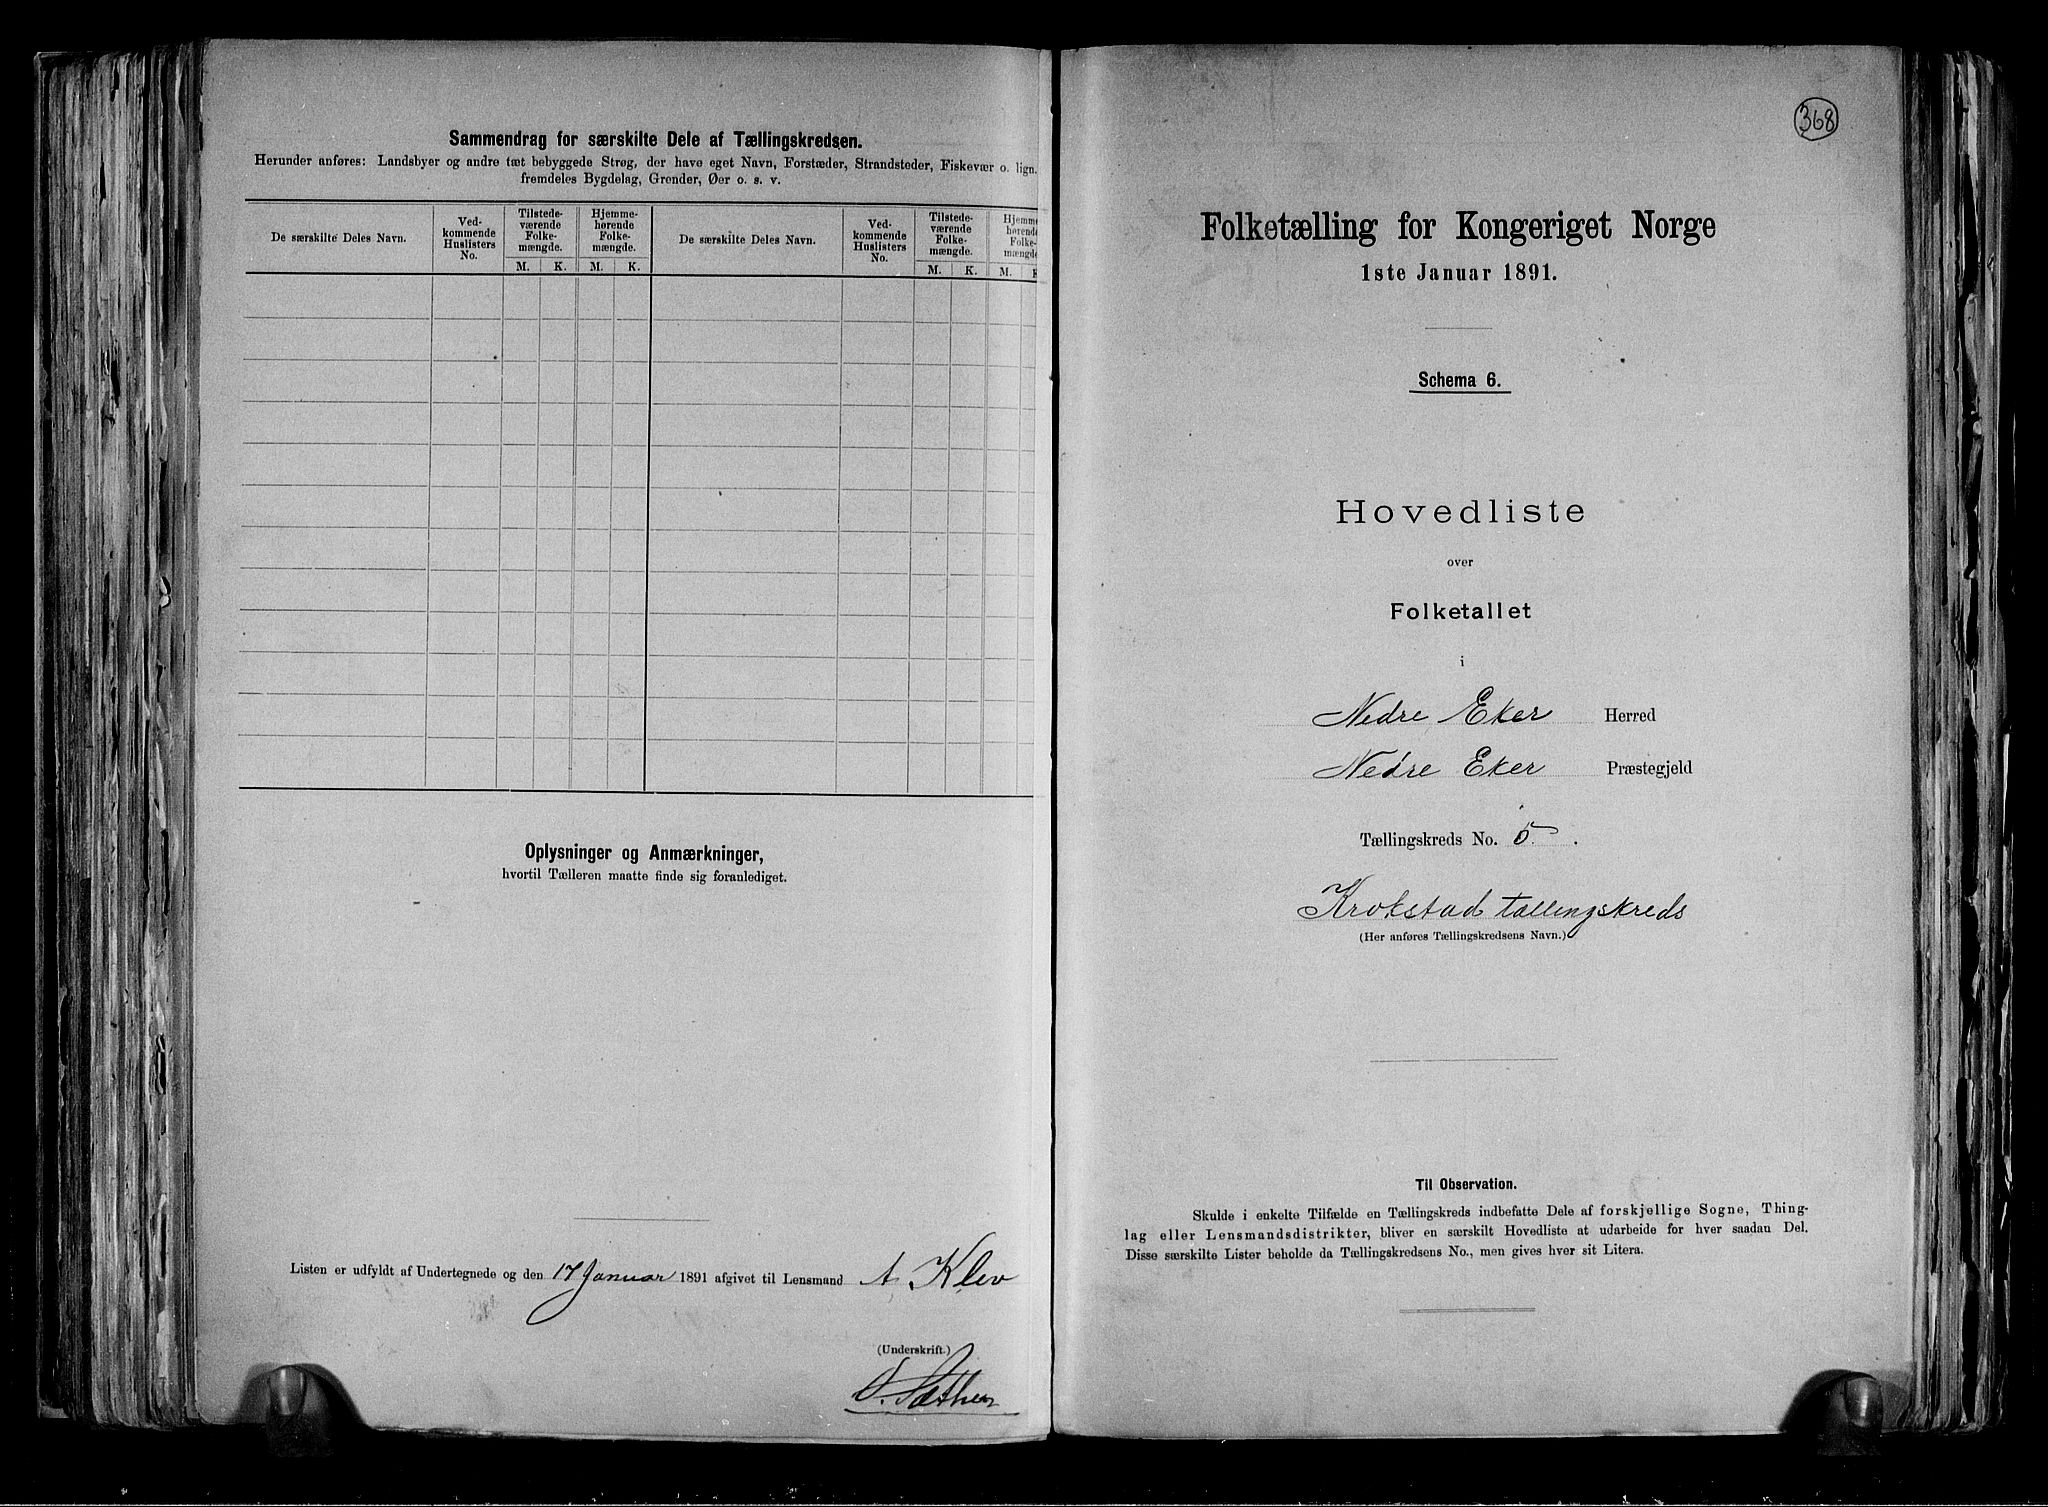 Sammendrag for særskilte Dele af Tællingskredsen.
Herunder anføres: Landsbyer og andre tæt bebyggede Strøg, der have eget Navn, Forstæder, Strandsteder, Fiskevær o. lign.
fremdeles Bygdelag, Grender, Øer o. s. v.
De særskilte Deles Navn.
Ved-
kommende
Huslisters
No.
Tilstede-
værende
Folke-
mængde.
Hjemme-
hørende
Folke-
mængde.
M. K. M. K.
De særskilte Deles Navn.
Ved-
kommende
Huslisters
No.
Tilstede-
værende
Folke-
mængde.
Hjemme-
hørende
Folke-
mængde
M. K. M. K
Oplysninger og Anmærkninger,
hvortil Tælleren maatte finde sig foranlediget.
Listen er udfyldt af Undertegnede og den 17 Januar 1891 afgivet til Lensmand A. Klev
(Underskrift.)
368
Folketælling for Kongeriget Norge
1ste Januar 1891.
Schema 6.
Hovedliste
over
Folketallet
i
Nedre Eker Herred
Nedre Eker Præstegjeld
Tællingskreds No. 5.
Krokstad tællingskreds
(Her anføres Tællingskredsens Navn.)
Til Observation.
Skulde i enkelte Tilfælde en Tællingskreds indbefatte Dele af forskjellige Sogne, Thing-
lag eller Lensmandsdistrikter, bliver en særskilt Hovedliste at udarbeide for hver saadan Del.
Disse særskilte Lister beholde da Tællingskredsens No., men gives hver sit Litera.